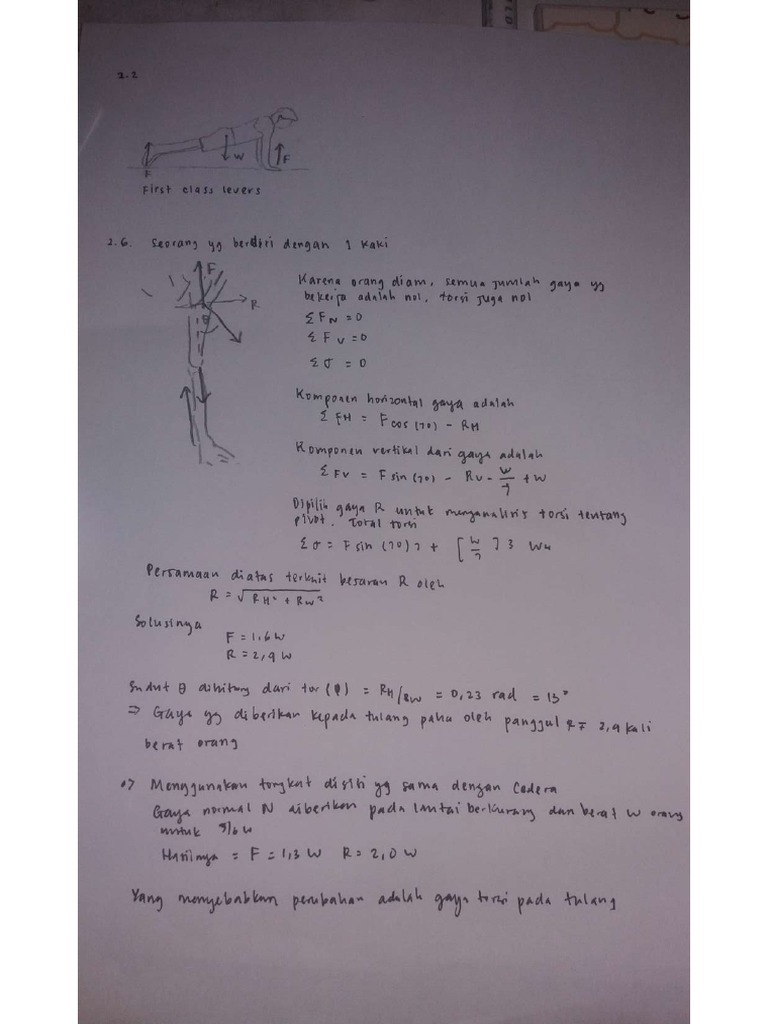 2.2
F
W
F
First class levers
2.6. Seorang yg berdiri dengan 1 kaki
F
R
θ
Karena orang diam, semua jumlah gaya yg
bekerja adalah nol, torsi juga nol
ΣFN = 0
ΣFV = 0
Σσ = 0
Komponen horizontal gaya adalah
ΣFH = F cos (70) - RH
Komponen vertikal dari gaya adalah
ΣFV = F sin (70) - RV - W/7 + W
Dipilih gaya R untuk menganalisis torsi tentang
pivot. Total torsi
Σσ = F sin (70) 7 + [W/7] 3 W4
Persamaan diatas terkait besaran R oleh
R = √RH² + RW²
Solusinya
F = 1,6 W
R = 2,9 W
Sudut θ dihitung dari (φ) = RH/RW = 0,23 rad = 13°
⇒ Gaya yg diberikan kepada tulang paha oleh panggul 2,9 kali
berat orang
Menggunakan tongkat disisi yg sama dengan Cedera
Gaya normal N diberikan pada lantai berkurang dan berat W orang
untuk 5/6 W
Hasilnya = F = 1,3 W R = 2,0 W
Yang menyebabkan perubahan adalah gaya torsi pada tulang